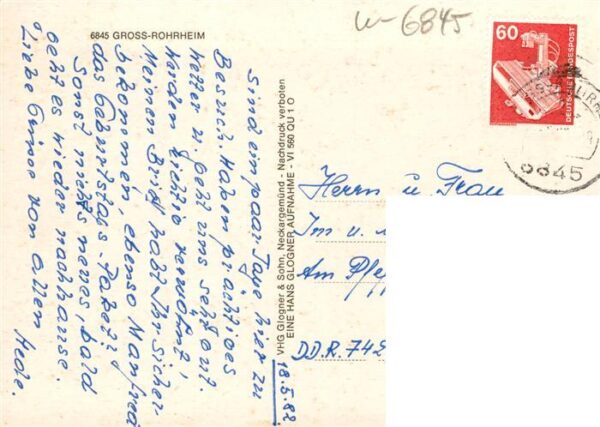 6845 GROSS-ROHRHEIM
w- 6845
60
DEUTSCHE BUNDESPOST
6845
18.5.82
Sind ein paar Tage hier zu
Besuch. Haben prächtiges
Wetter u. geht uns sehr gut.
Werden richtig verwöhnt!
Meinen Brief habt Ihr sicher
bekommen, ebenso Manfred
das Geburtstags-Paket?
Sonst nichts neues, bald
geht es wieder nachhause.
Liebe Grüsse von allen
Hede.
VHG Glogner & Sohn, Neckargemünd - Nachdruck verboten
EINE HANS GLOGNER AUFNAHME - VI 560 QU 1 O
Herrn u Frau
Im u.
Am
D.D.R. 742